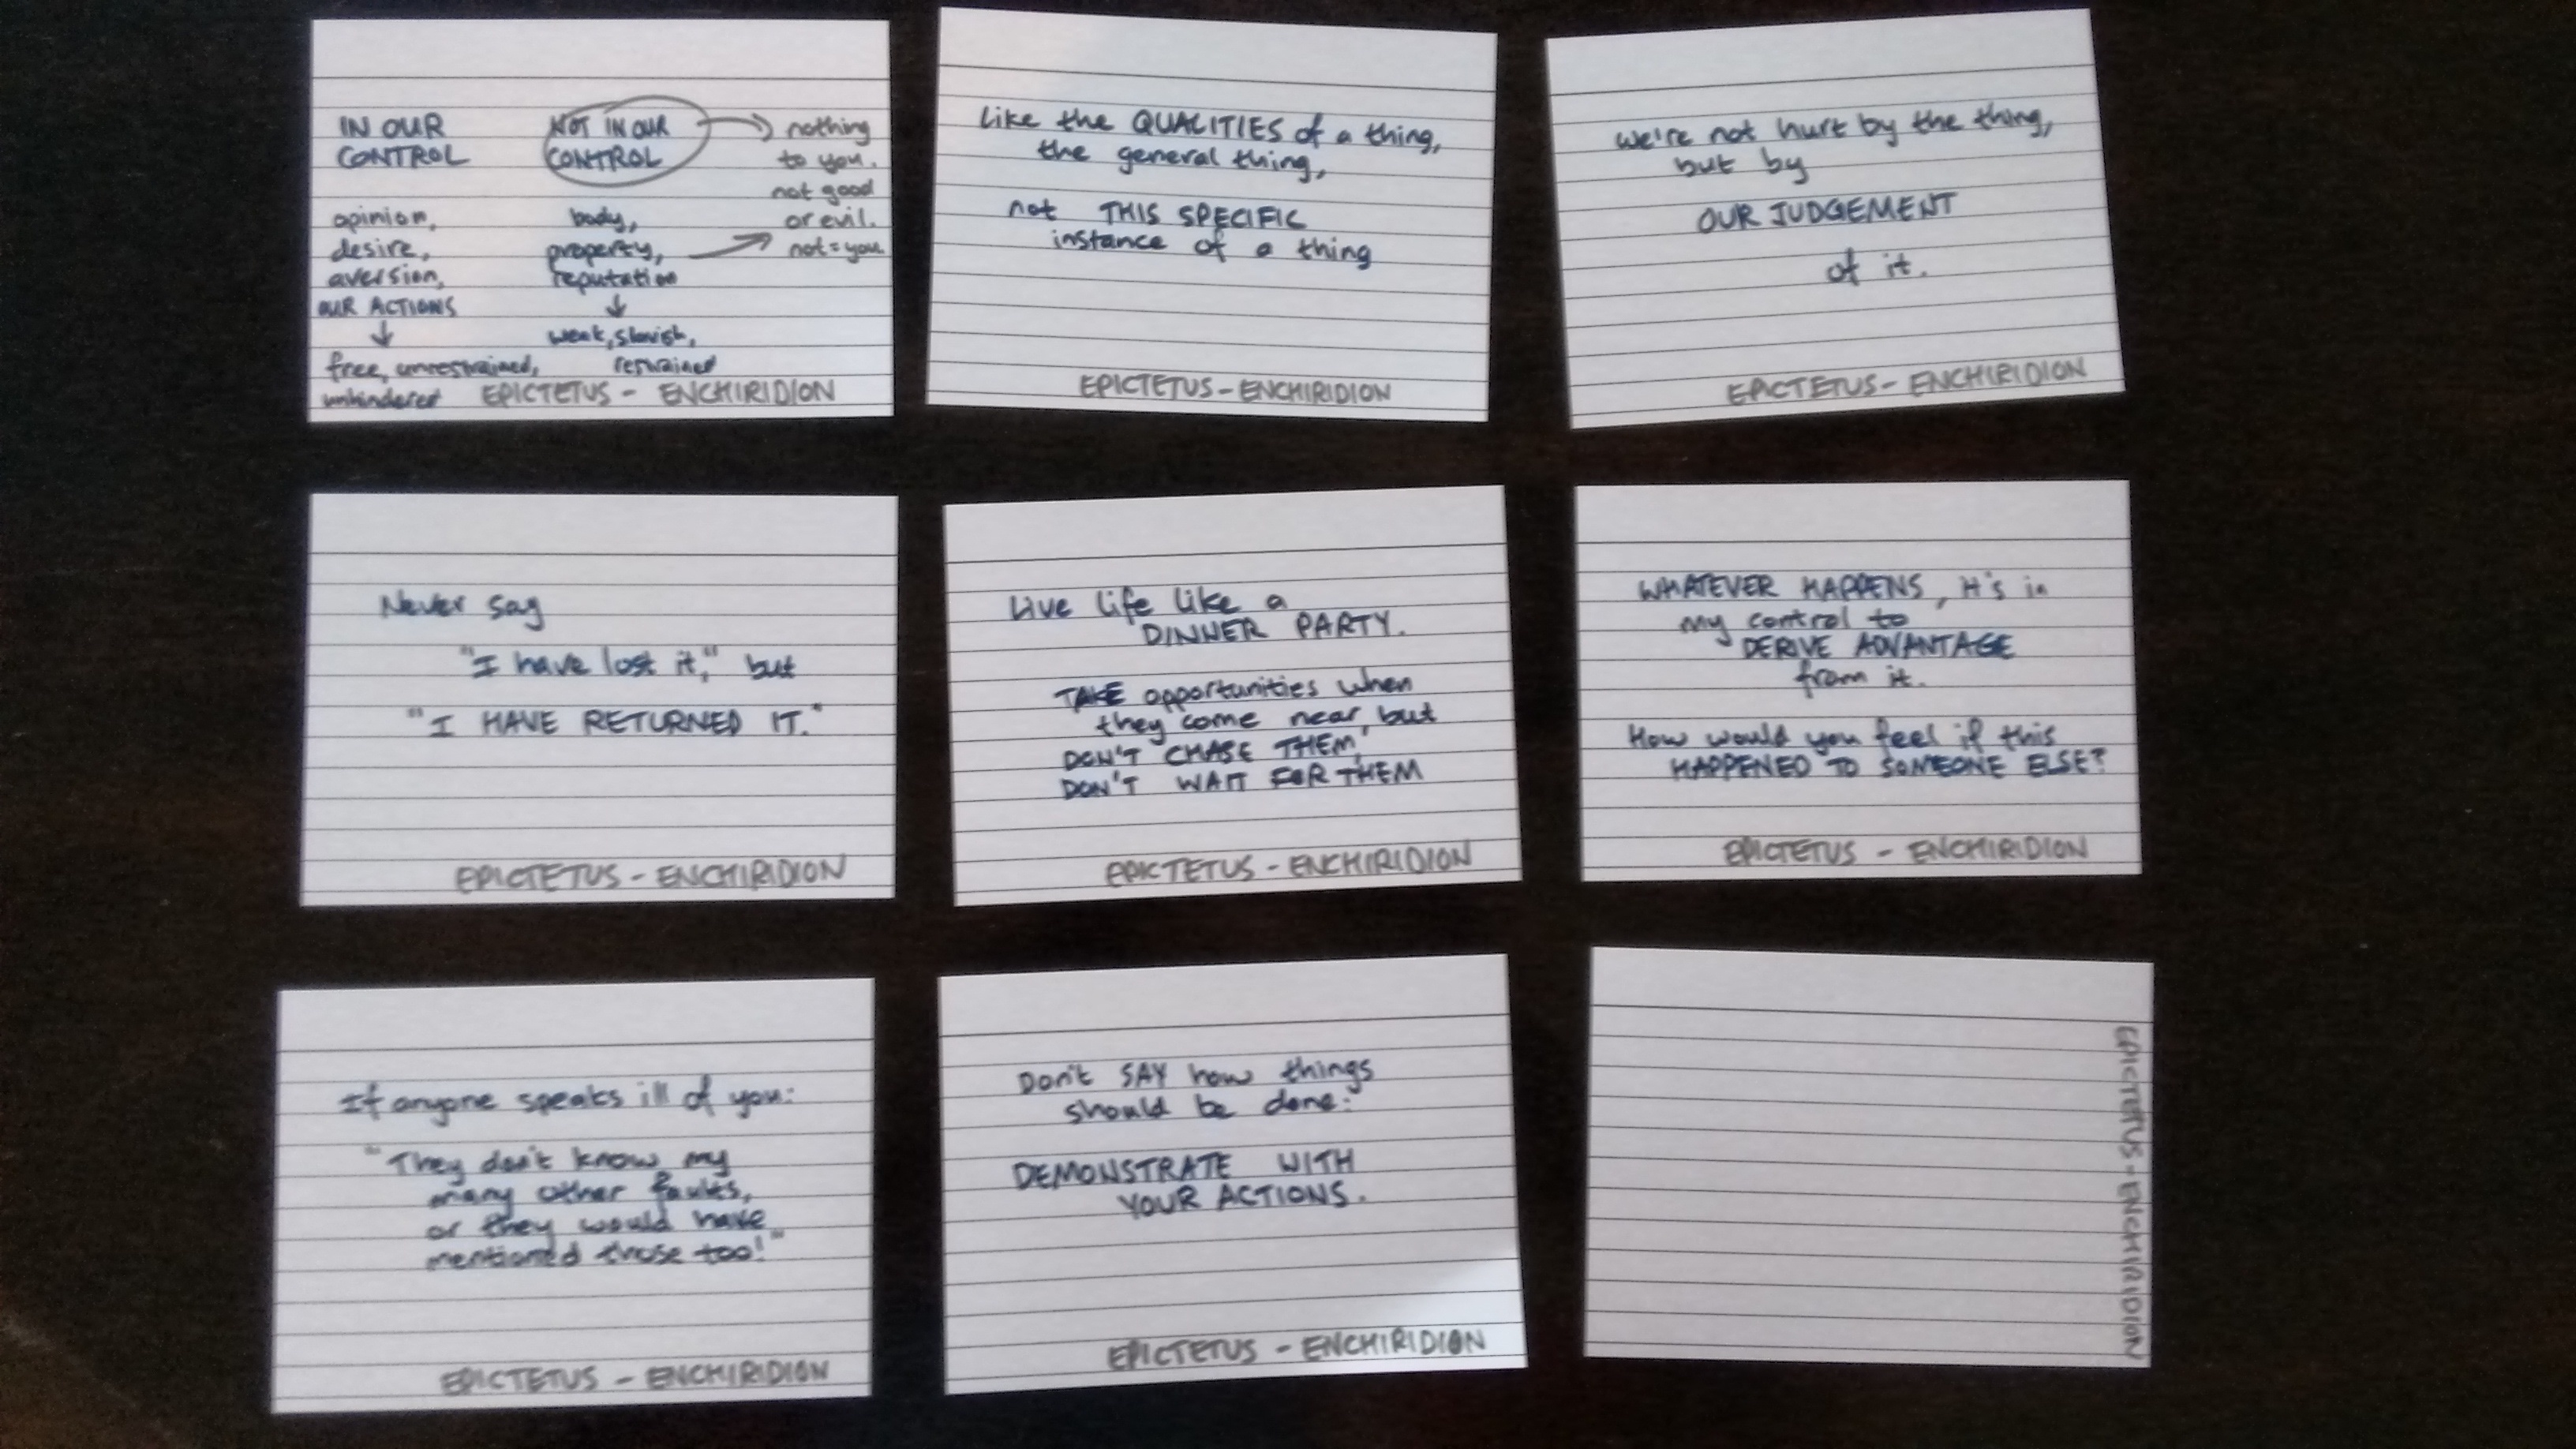 IN OUR
CONTROL
opinion,
desire,
aversion,
OUR ACTIONS
↓
free, unrestrained,
unhindered
NOT IN OUR
CONTROL
body,
property,
reputation
↓
weak, slavish,
restrained
nothing
to you.
not good
or evil.
not = you.
EPICTETUS - ENCHIRIDION
Like the QUALITIES of a thing,
the general thing,
not THIS SPECIFIC
instance of a thing
EPICTETUS - ENCHIRIDION
we're not hurt by the thing,
but by
OUR JUDGEMENT
of it.
EPICTETUS - ENCHIRIDION
Never say
"I have lost it," but
"I HAVE RETURNED IT."
EPICTETUS - ENCHIRIDION
Live life like a
DINNER PARTY.
TAKE opportunities when
they come near, but
DON'T CHASE THEM,
DON'T WAIT FOR THEM
EPICTETUS - ENCHIRIDION
WHATEVER HAPPENS, it's in
my control to
DERIVE ADVANTAGE
from it.
How would you feel if this
HAPPENED TO SOMEONE ELSE?
EPICTETUS - ENCHIRIDION
If anyone speaks ill of you:
"They don't know my
many other faults,
or they would have
mentioned those too!"
EPICTETUS - ENCHIRIDION
Don't SAY how things
should be done:
DEMONSTRATE WITH
YOUR ACTIONS.
EPICTETUS - ENCHIRIDION
EPICTETUS - ENCHIRIDION